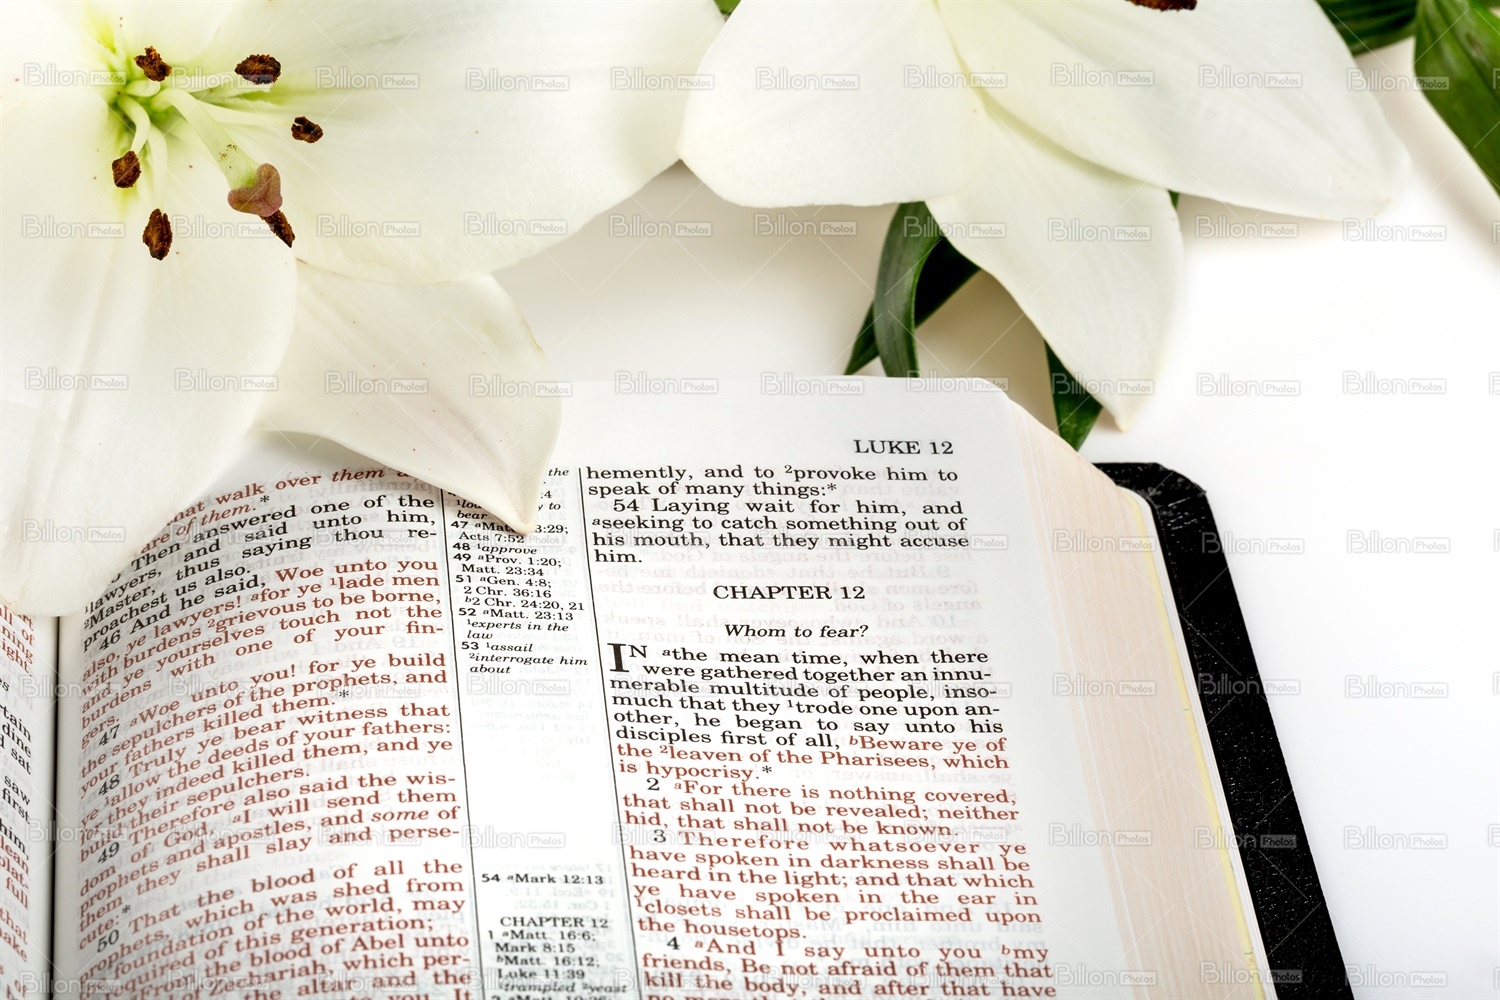 LUKE 12
hat walk over them
are of them.*
Then answered one of the
lawyers, and said unto him,
Master, thus saying thou re-
proachest us also.
46 And he said, Woe unto you
also, ye lawyers! ᵃfor ye ¹lade men
with burdens ²grievous to be borne,
and ye yourselves touch not the
burdens with one of your fin-
gers.
47 ᵃWoe unto you! for ye build
the sepulchers of the prophets, and
your fathers killed them.*
48 Truly ye bear witness that
ye ¹allow the deeds of your fathers:
for they indeed killed them, and ye
build their sepulchers.
49 Therefore also said the wis-
dom of God, ᵃI will send them
prophets and apostles, and some of
them they shall slay and perse-
cute:*
50 That the blood of all the
prophets, which was shed from
foundation of the world, may
required of this generation;
From the blood of Abel unto
of Zechariah, which per-
the altar and the
unto you, It
the
to
bear
47 ᵃMatt. 3:29;
Acts 7:52
48 ¹approve
49 ᵃProv. 1:20;
Matt. 23:34
51 ᵃGen. 4:8;
2 Chr. 36:16
ᵇ2 Chr. 24:20, 21
52 ᵃMatt. 23:13
¹experts in the
law
53 ¹assail
²interrogate him
about
54 ᵃMark 12:13
CHAPTER 12
1 ᵃMatt. 16:6;
Mark 8:15
ᵇMatt. 16:12;
Luke 11:39
¹trampled ²yeast
hemently, and to ²provoke him to
speak of many things:*
54 Laying wait for him, and
ᵃseeking to catch something out of
his mouth, that they might accuse
him.
CHAPTER 12
Whom to fear?
IN ᵃthe mean time, when there
were gathered together an innu-
merable multitude of people, inso-
much that they ¹trode one upon an-
other, he began to say unto his
disciples first of all, ᵇBeware ye of
the ²leaven of the Pharisees, which
is hypocrisy.*
2 ᵃFor there is nothing covered,
that shall not be revealed; neither
hid, that shall not be known.
3 Therefore whatsoever ye
have spoken in darkness shall be
heard in the light; and that which
ye have spoken in the ear in
¹closets shall be proclaimed upon
the housetops.
4 ᵃAnd I say unto you my
friends, Be not afraid of them that
kill the body, and after that have